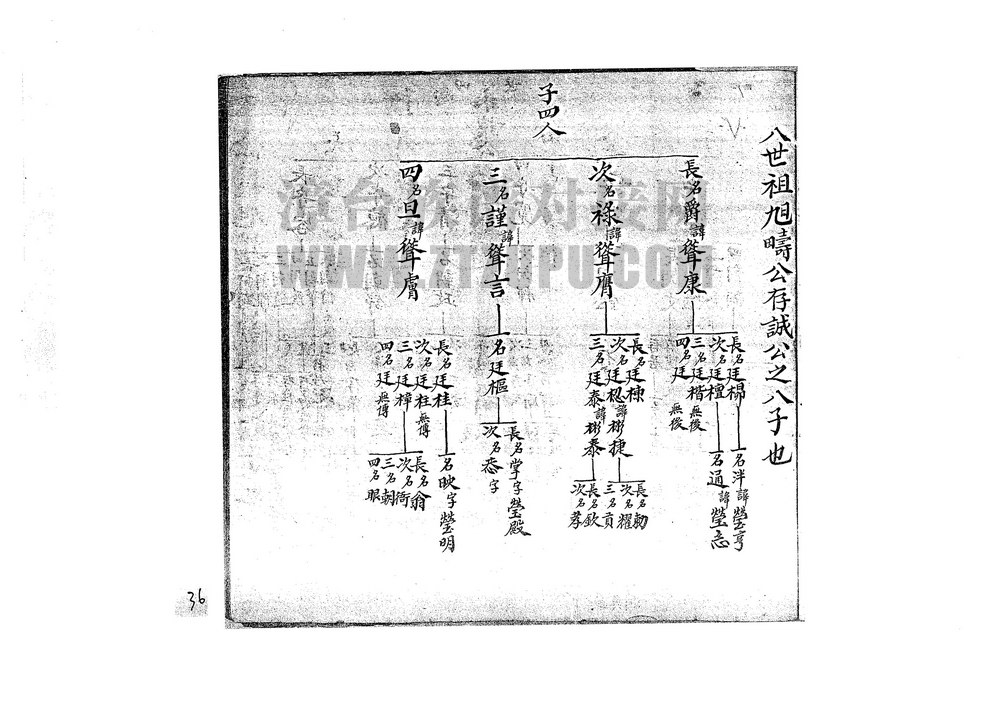 八世祖旭疇公存誠公之八子也
子四人
長名爵諱聳康
次名祿諱聳膺
三名謹諱聳言
四名旦諱聳膚
長名廷楊
次名廷檀
三名廷楷無後
四名廷 無後
長名廷棟
次名廷 諱彬捷
三名廷泰諱彬泰
名廷樞
長名廷桂
次名廷柱無傳
三名廷樟
四名廷 無傳
名泮諱瑩亨
名通諱瑩志
長名勅
次名耀
三名貢
長名欽
次名孝
長名掌字瑩殿
次名 字
名映字瑩明
長名翁
次名衙
三名朝
四名服
漳台族谱对接网
WWW.ZTZUPU.COM
36